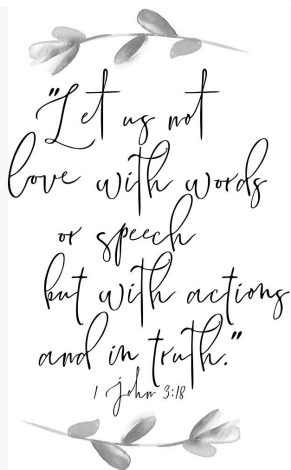 "Let us not
love with words
or speech
but with actions
and in truth."
1 John 3:18